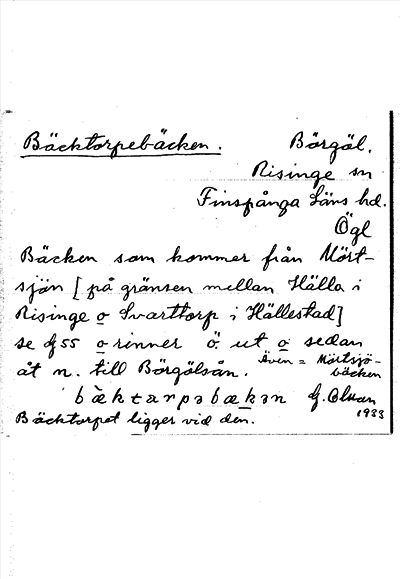 Bäcktorpebäcken. Börgöl.
Risinge sn
Finspånga Läns hd.
Ögl
Bäcken som kommer från Mört-
sjön [på gränsen mellan Hälla i
Risinge o Svarttorp i Hällestad]
se gf 55 o rinner ö. ut o sedan
åt n. till Börgölsån. Även = Mörtsjö-
bäcken
bäktarpəbækən G. Olsson
1933
Bäcktorpet ligger vid den.